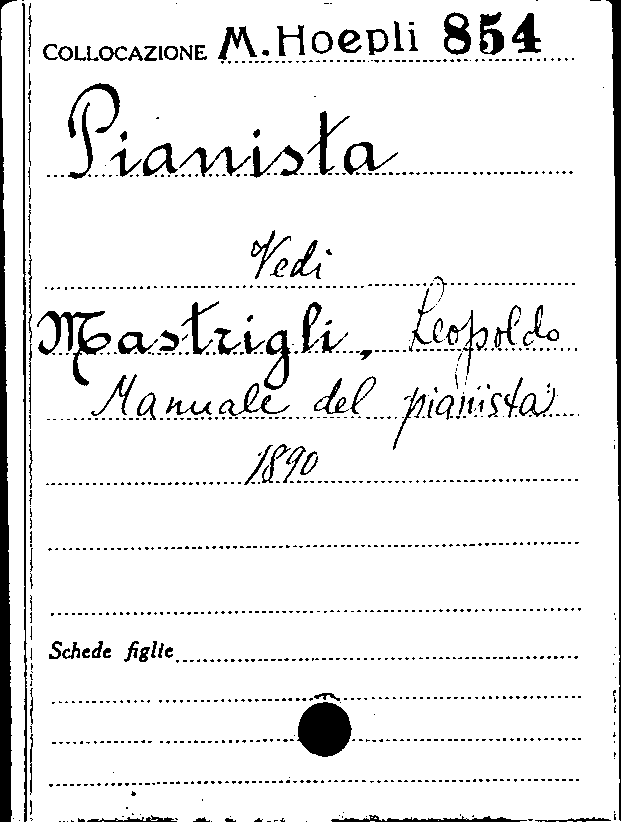 COLLOCAZIONE M. Hoepli 854
Pianista
Vedi
Mastrigli, Leopoldo
Manuale del pianista
1890
Schede figlie